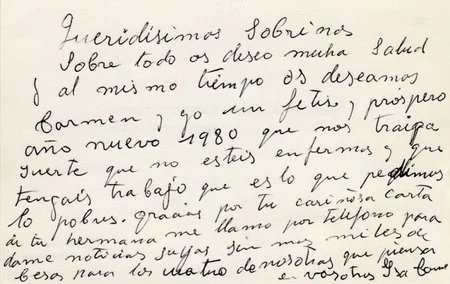 Queridísimos Sobrinos
Sobre todo os deseo mucha Salud
y al mismo tiempo os deseamos
Carmen y yo un feliz y próspero
año nuevo 1980 que nos traiga
suerte que no esteis enfermos y que
tengais trabajo que es lo que pedimos
lo pobres. gracias por tu cariñosa carta
de tu hermana me llamo por teléfono para
darme noticias suyas sin mas miles de
besos para los cuatro de nosotras que piensan
en vosotros Isa